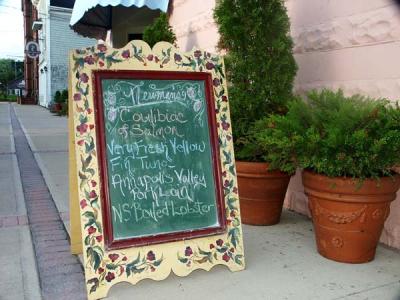 Newman's
Coulibiac
of Salmon
Very Fresh Yellow
Fin Tuna
Annapolis Valley
Pork Loin
NS Boiled Lobster